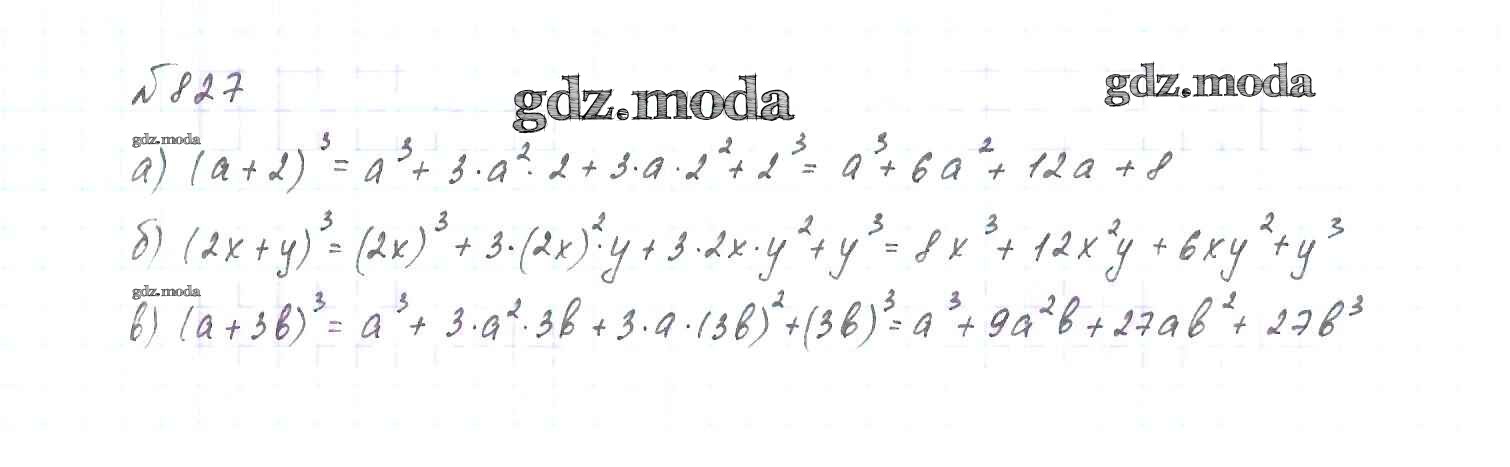 №827
gdz.moda
gdz.moda
gdz.moda
а) (a + 2)³ = a³ + 3·a²·2 + 3·a·2² + 2³ = a³ + 6a² + 12a + 8
б) (2x + y)³ = (2x)³ + 3·(2x)²·y + 3·2x·y² + y³ = 8x³ + 12x²y + 6xy² + y³
gdz.moda
в) (a + 3b)³ = a³ + 3·a²·3b + 3·a·(3b)² + (3b)³ = a³ + 9a²b + 27ab² + 27b³